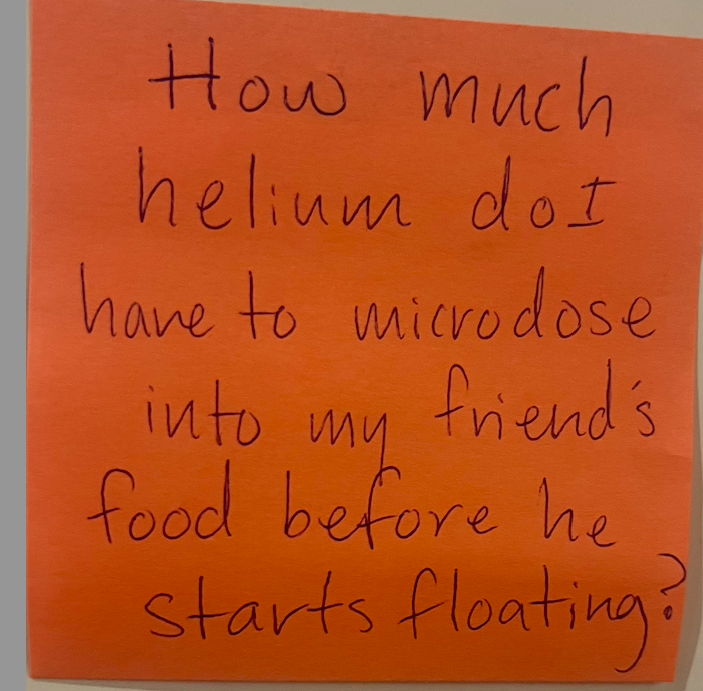 How much
helium do I
have to microdose
into my friend's
food before he
starts floating?